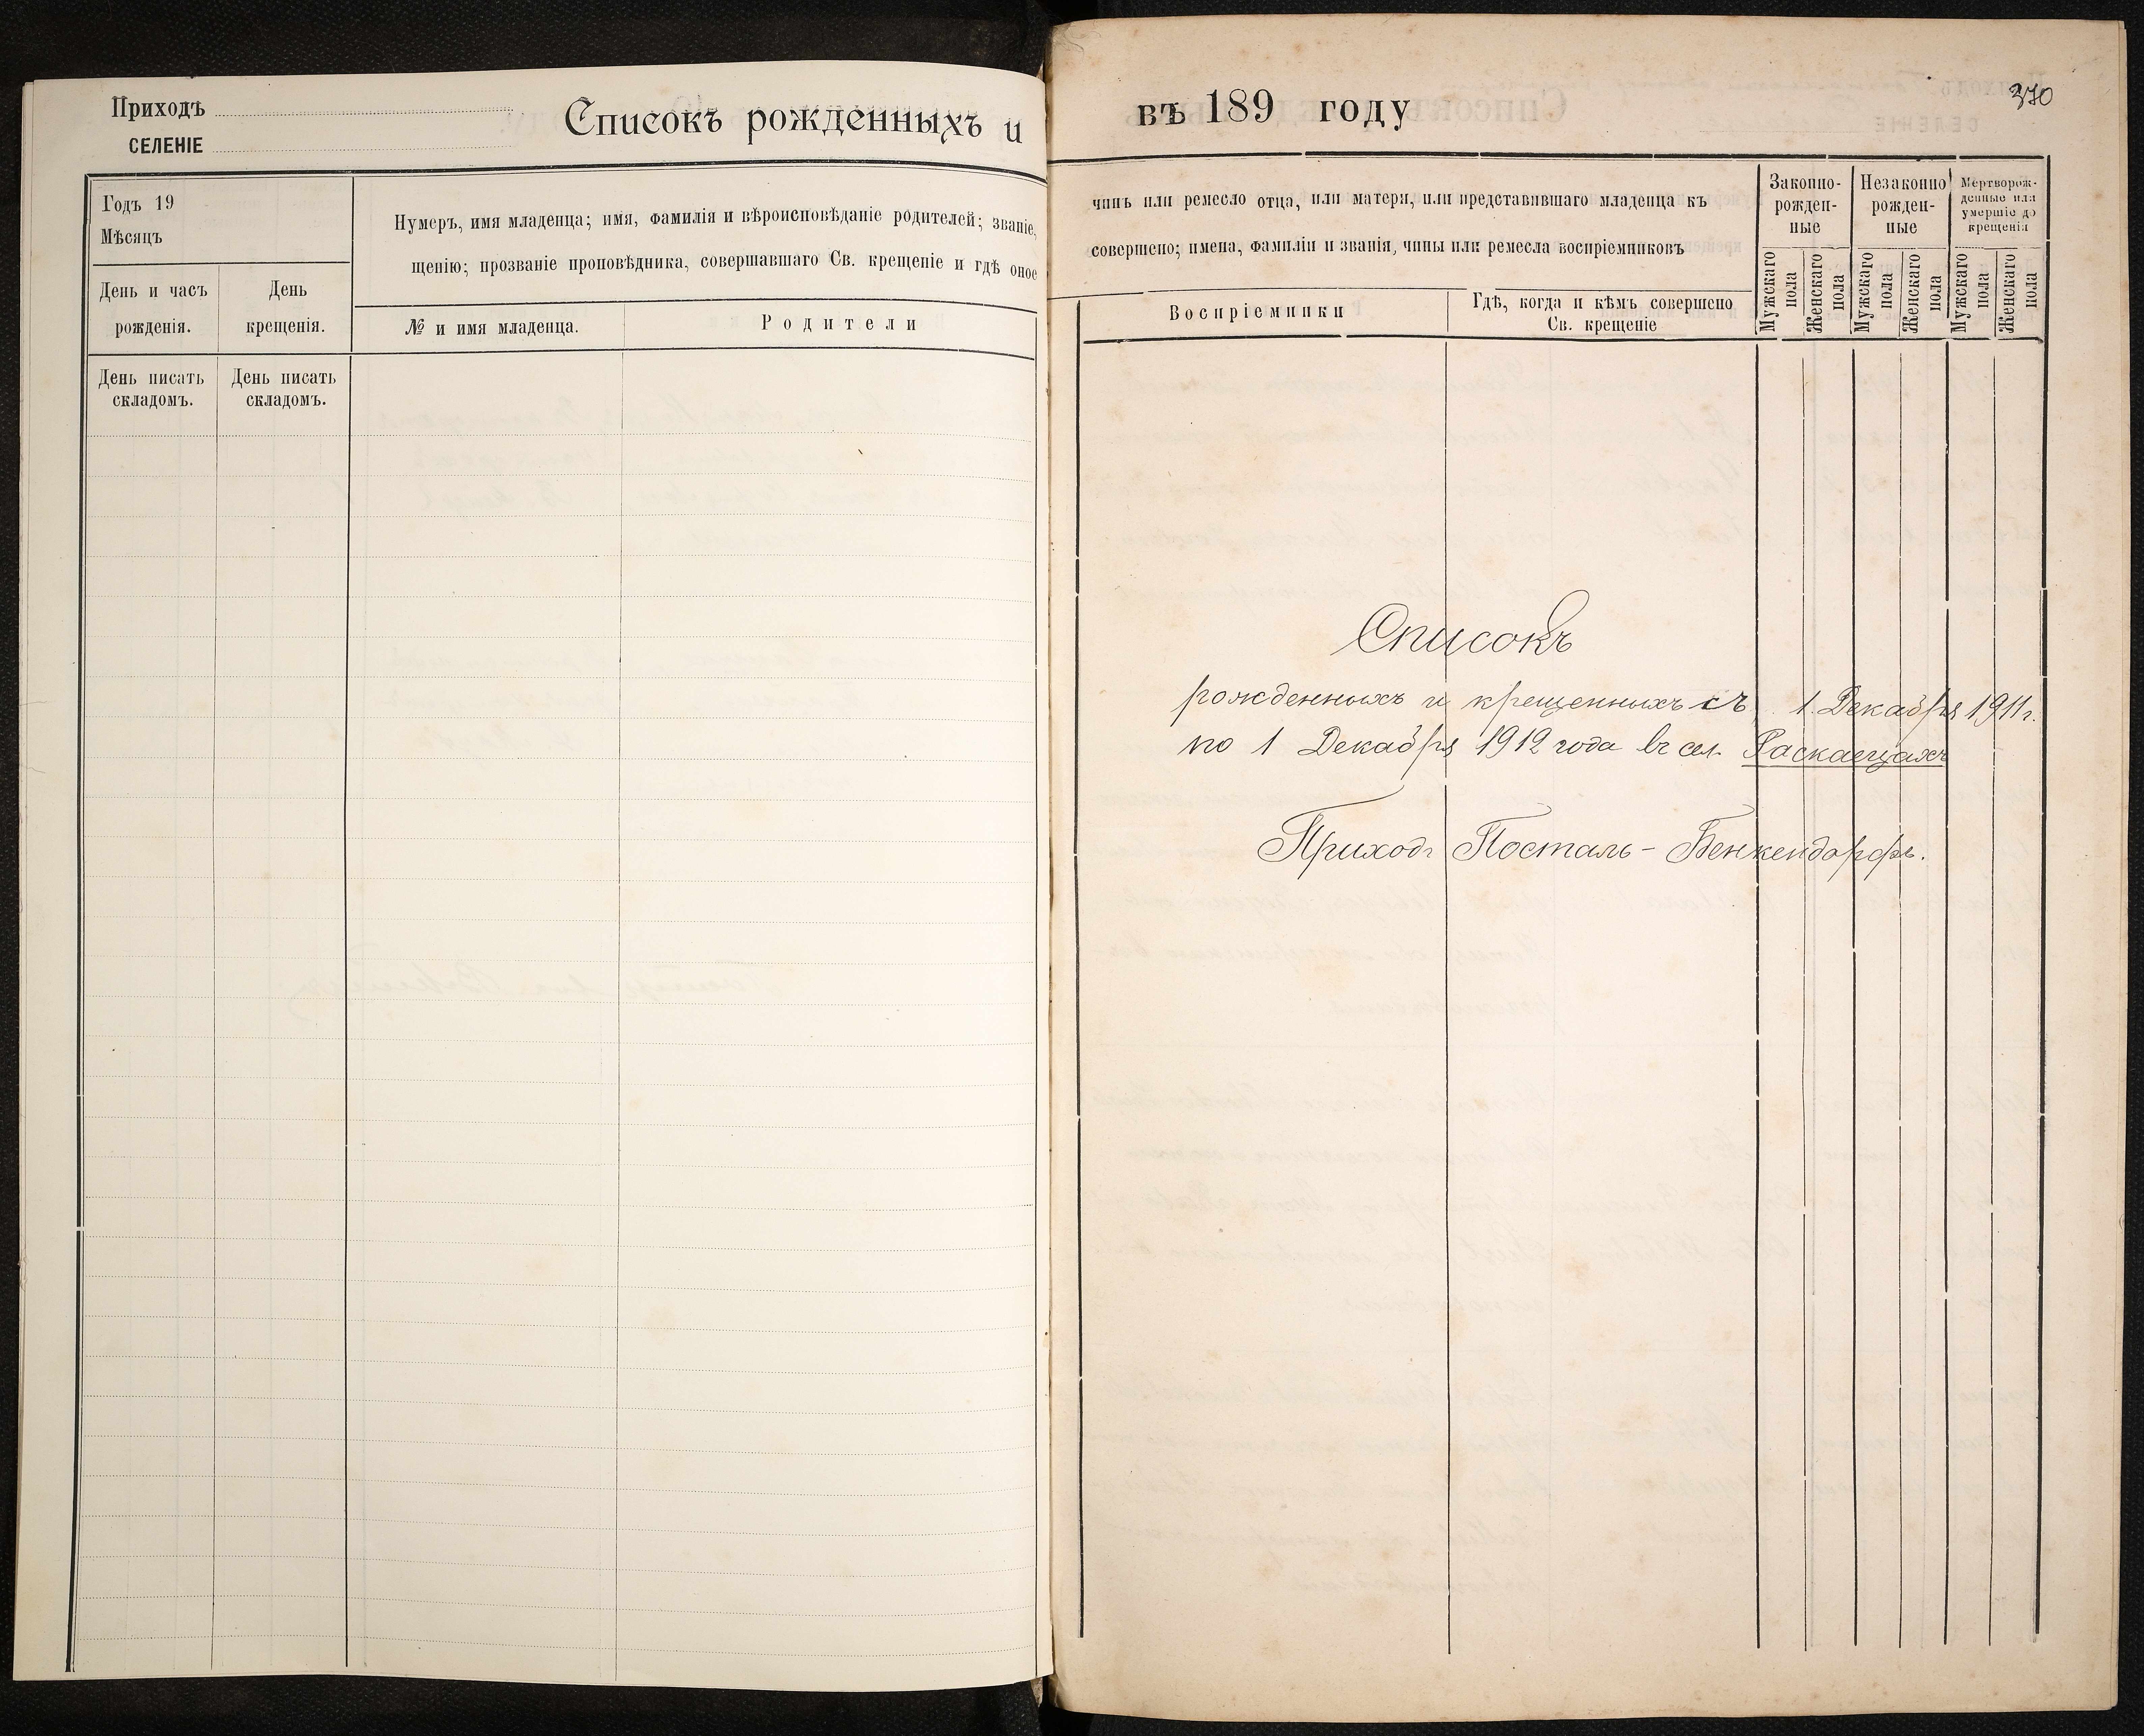 Приходъ
СЕЛЕНІЕ
Списокъ рожденныхъ и
Годъ 19
Мѣсяцъ
Нумеръ, имя младенца; имя, фамилія и вѣроисповѣданіе родителей; званіе,
щенію; прозваніе проповѣдника, совершавшаго Св. крещеніе и гдѣ оное
День и часъ
рожденія.
День
крещенія.
№ и имя младенца.
Родители
День писать
складомъ.
День писать
складомъ.
въ 189 году
370
чинъ или ремесло отца, или матери, или представившаго младенца къ
совершено; имена, фамиліи и званія, чины или ремесла воспріемниковъ
Воспріемники
Гдѣ, когда и кѣмъ совершено
Св. крещеніе
Законно-
рожден-
ные
Незаконно
рожден-
ные
Мертворож-
денные или
умершіе до
крещенія
Мужскаго
пола
Женскаго
пола
Мужскаго
пола
Женскаго
пола
Мужскаго
пола
Женскаго
пола
Списокъ
рожденныхъ и крещенныхъ съ 1. Декабря 1911 г.
по 1 Декабря 1912 года въ сел. Раскаецахъ
Приходъ Посталь-Бенкендорфъ.